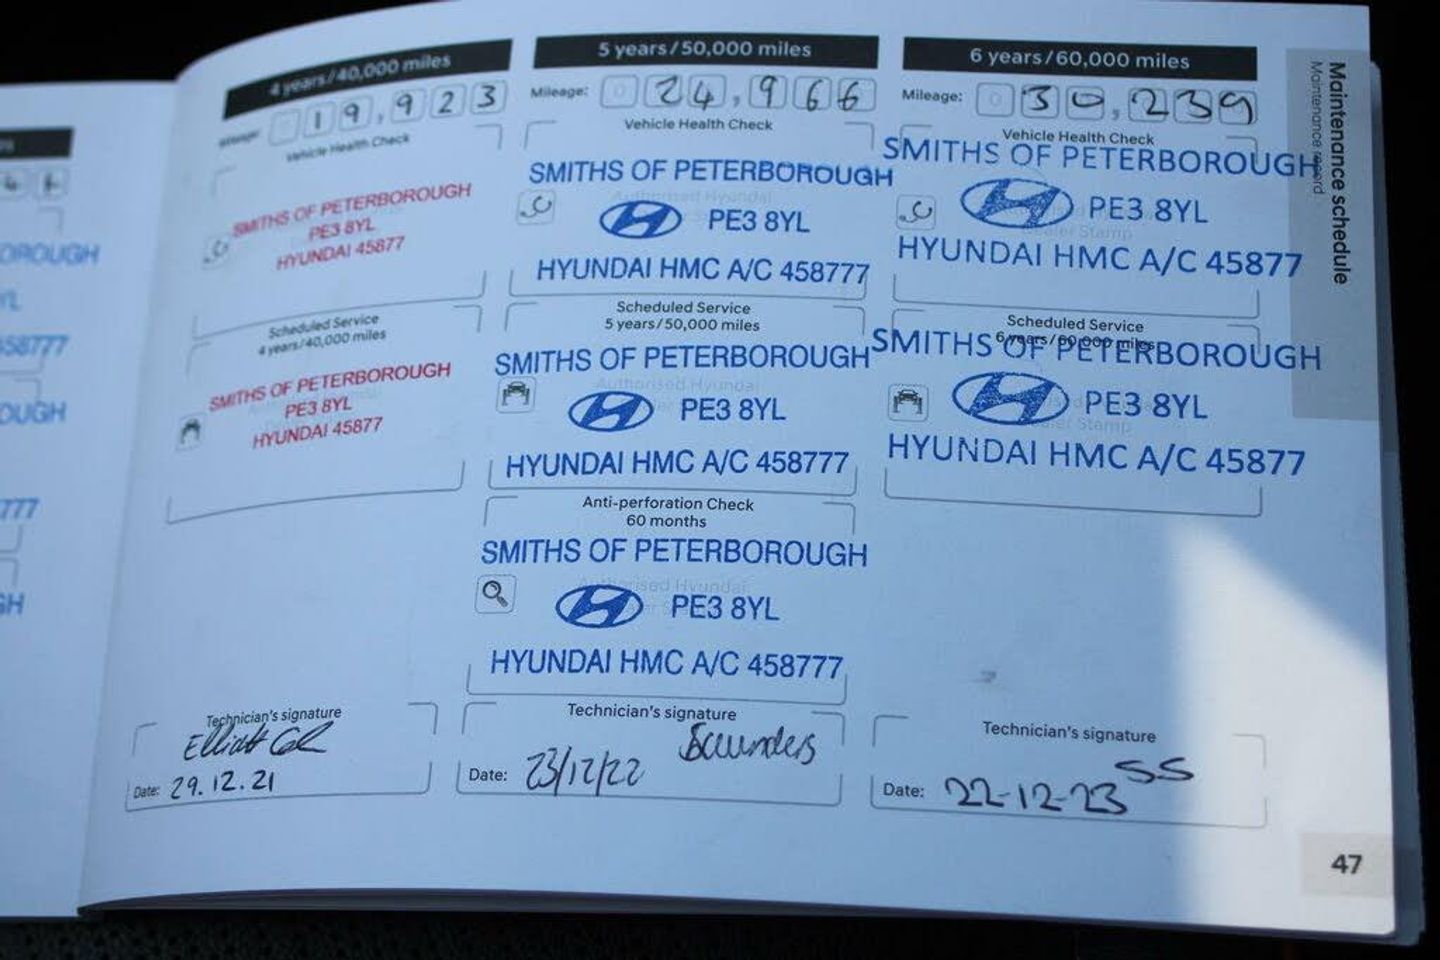 OROUGH
YL
58777
OUGH
777
GH
4 years/40,000 miles
Mileage: 0 19,923
Vehicle Health Check
SMITHS OF PETERBOROUGH
PE3 8YL
HYUNDAI 45877
Scheduled Service
4 years/40,000 miles
SMITHS OF PETERBOROUGH
PE3 8YL
HYUNDAI 45877
Technician's signature
Elliott
Date: 29.12.21
5 years/50,000 miles
Mileage: 0 24,966
Vehicle Health Check
SMITHS OF PETERBOROUGH
Authorised Hyundai
PE3 8YL
HYUNDAI HMC A/C 458777
Scheduled Service
5 years/50,000 miles
SMITHS OF PETERBOROUGH
Authorised Hyundai
PE3 8YL
HYUNDAI HMC A/C 458777
Anti-perforation Check
60 months
SMITHS OF PETERBOROUGH
Authorised Hyundai
PE3 8YL
HYUNDAI HMC A/C 458777
Technician's signature
Saunders
Date: 23/12/22
6 years/60,000 miles
Mileage: 0 30,239
Vehicle Health Check
SMITHS OF PETERBOROUGH
PE3 8YL
Dealer Stamp
HYUNDAI HMC A/C 45877
Scheduled Service
6 years/60,000 miles
SMITHS OF PETERBOROUGH
PE3 8YL
Stamp
HYUNDAI HMC A/C 45877
Technician's signature
SS
Date: 22-12-23
Maintenance schedule
Maintenance record
47